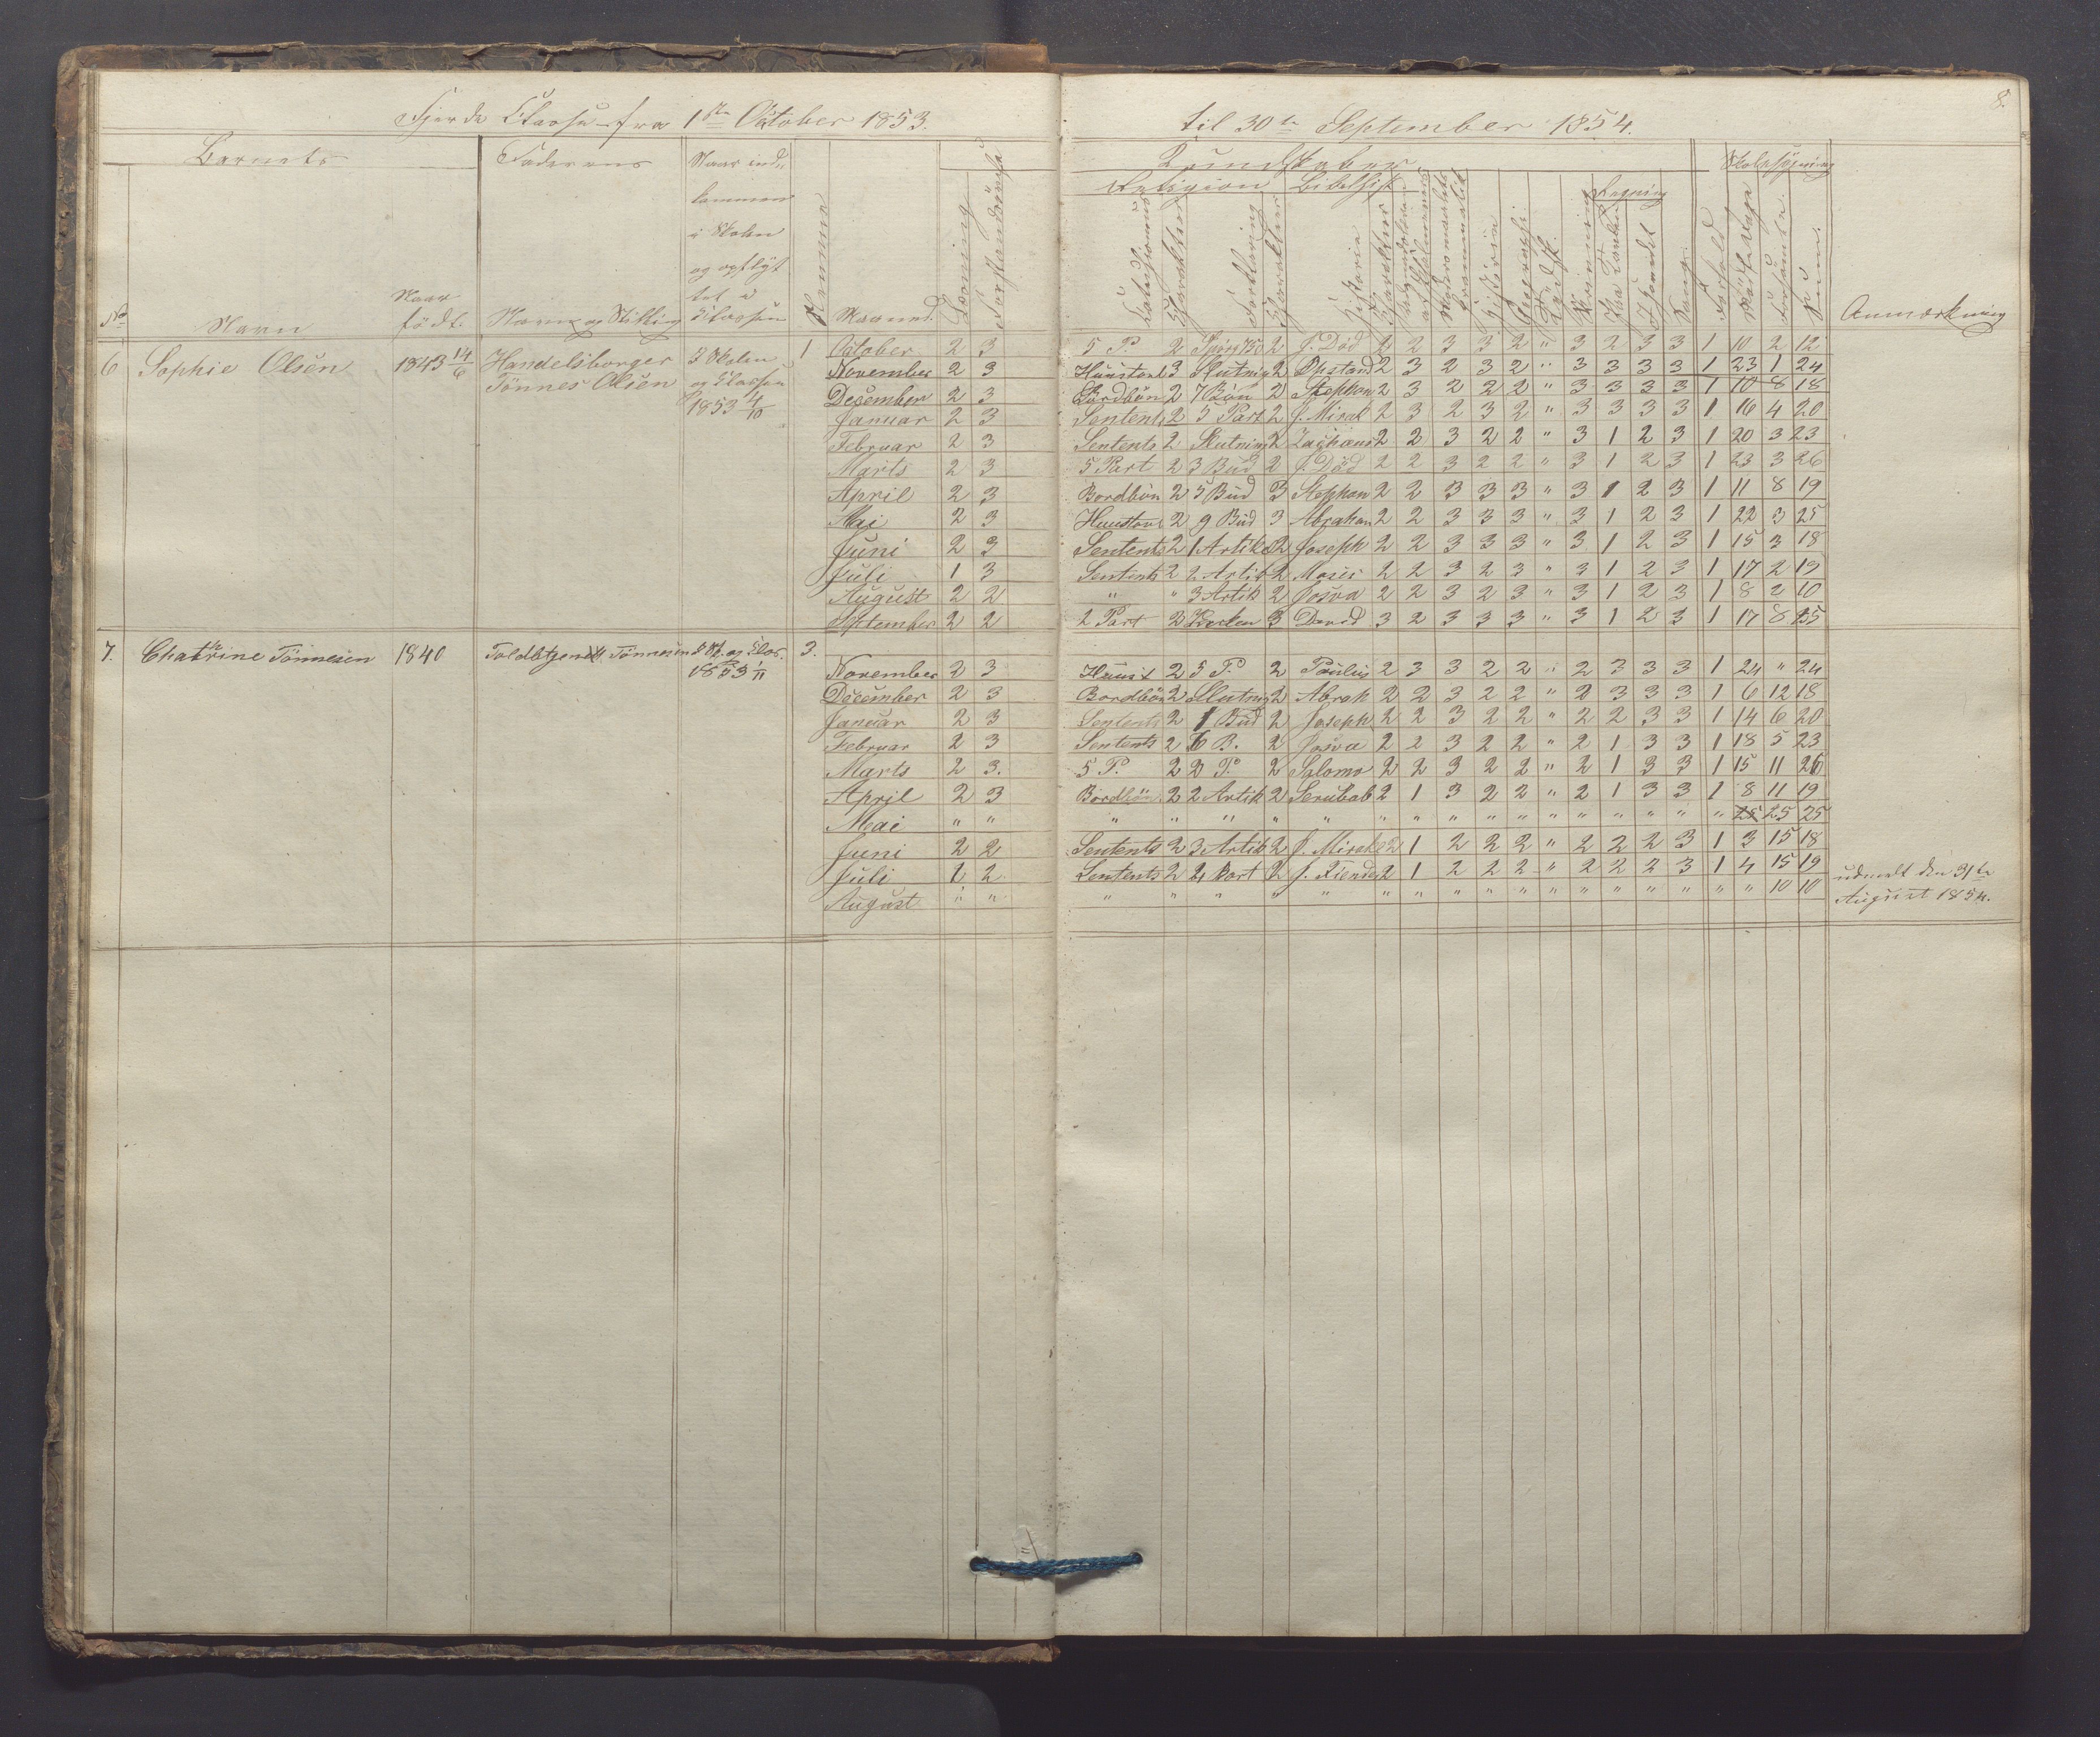 8.
Fjerde Classe fra 1ste October 1853. til 30te September 1854.
Barnets Faderens Naar ind- Kundskaber Skolesøgning
kommen Religion Bibelhist. Regning
i Skolen
og opflyt
tet i
No Navn Naar født. Navn og Stilling Classen Nummer Maaned. Læsning Forstandsøvelse Catechismus Charakter Forklaring Charakter Historie Charakter Historie Geographi. Skrivning Paa Tavlen I Hovedet Sang. Forhold Mødte Dage Forsømte Sum. Anmærkning
6 Sophie Olsen 1843 14/6 Handelsborger I Skolen 1 October 2 3 5 P. 2 2 J. Död 2 2 3 3 2 " 3 2 3 3 1 10 2 12
Tönnes Olsen og Classen November 2 3 Huustavl 3 Slutning 2 Opstand 2 3 2 3 2 " 3 3 3 3 1 23 1 24
1853 4/10 December 2 3 Bordbön 2 7 Bön 2 Stephan 2 3 2 2 2 " 3 3 3 3 1 10 8 18
Januar 2 3 Sentents 2 5 Part 2 J. Mirak 2 3 2 3 2 " 3 3 3 3 1 16 4 20
Februar 2 3 Sentents 2 Slutning 2 Zachæus 2 2 3 2 2 " 3 1 2 3 1 20 3 23
Marts 2 3 5 Part 2 3 Bud 2 J. Död 2 2 3 2 2 " 3 1 2 3 1 23 3 26
April 2 3 Bordbön 2 5 Bud 3 Stephan 2 2 3 3 3 " 3 1 2 3 1 11 8 19
Mai 2 3 Huustavl 2 9 Bud 3 Abraham 2 2 3 3 3 " 3 1 2 3 1 22 3 25
Juni 2 3 Sentents 2 1 Artik 2 Joseph 2 2 3 3 3 " 3 1 2 3 1 15 3 18
Juli 1 3 Sentents 2 2 Artik 2 Moses 2 2 3 2 3 " 3 1 2 3 1 17 2 19
August 2 2 " " 3 Artik 2 Josva 2 2 3 2 3 " 3 1 2 3 1 8 2 10
September 2 2 2 Part 3 3 David 3 2 3 3 3 " 3 1 2 3 1 17 8 25
7. Chatrine Tönnesen 1840 Toldbtjenest. Tönnesen I Sk. og Clas. 3.
1853 1/11 November 2 3 Huust 2 5 P. 2 Paulus 2 3 3 2 2 " 2 3 3 3 1 24 " 24
December 2 3 Bordbön 2 Slutning 2 Abrah 2 2 3 2 2 " 2 3 3 3 1 6 12 18
Januar 2 3 Sentents 2 1 Bud 2 Joseph 2 2 3 2 2 " 2 2 3 3 1 14 6 20
Februar 2 3 Sentents 2 6 B. 2 Josva 2 2 3 2 2 " 2 1 3 3 1 18 5 23
Marts 2 3. 5 P. 2 2 P. 2 Salomo 2 2 3 2 2 " 2 1 3 3 1 15 11 26
April 2 3 Bordbön 2 2 Artik 2 Serubab 2 1 3 2 2 " 2 1 3 3 1 8 11 19
Mai " " " " " " " " " " " " " " " " " " " 25 25 25
Juni 2 2 Sentents 2 3 Artik 2 J. Mirakl 2 1 2 2 2 " 2 2 2 3 1 3 15 18
Juli 1 2 Sentents 2 4 Part 2 J. Fiender 2 1 2 2 2 " 2 2 2 3 1 4 15 19 udmeldt den 31te
August " " " " " " " " " " " " " " " " " " " " 10 10 August 1854.